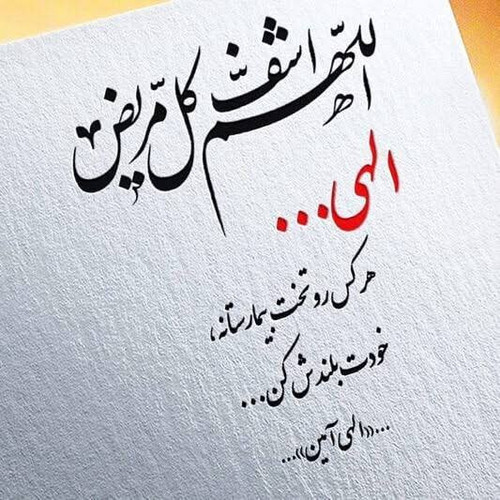 اللّهم اشفِ کل مریض
الهی...
هر کس رو تخت بیمارستانه،
خودت بلندش کن...
...«الهی آمین»...